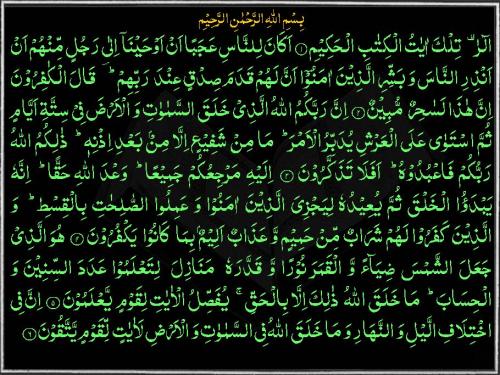 بِسْمِ اللهِ الرَّحْمٰنِ الرَّحِيْمِ
الٓرٰ ۟ تِلْكَ اٰيٰتُ الْكِتٰبِ الْحَكِيْمِ ۝١ اَكَانَ لِلنَّاسِ عَجَبًا اَنْ اَوْحَيْنَاۤ اِلٰى رَجُلٍ مِّنْهُمْ اَنْ
اَنْذِرِ النَّاسَ وَ بَشِّرِ الَّذِيْنَ اٰمَنُوْۤا اَنَّ لَهُمْ قَدَمَ صِدْقٍ عِنْدَ رَبِّهِمْ ؕ قَالَ الْكٰفِرُوْنَ
اِنَّ هٰذَا لَسٰحِرٌ مُّبِيْنٌ ۝٢ اِنَّ رَبَّكُمُ اللهُ الَّذِيْ خَلَقَ السَّمٰوٰتِ وَ الْاَرْضَ فِيْ سِتَّةِ اَيَّامٍ
ثُمَّ اسْتَوٰى عَلَى الْعَرْشِ يُدَبِّرُ الْاَمْرَ ؕ مَا مِنْ شَفِيْعٍ اِلَّا مِنْۢ بَعْدِ اِذْنِهٖ ؕ ذٰلِكُمُ اللهُ
رَبُّكُمْ فَاعْبُدُوْهُ ؕ اَفَلَا تَذَكَّرُوْنَ ۝٣ اِلَيْهِ مَرْجِعُكُمْ جَمِيْعًا ؕ وَعْدَ اللهِ حَقًّا ؕ اِنَّهٗ
يَبْدَؤُا الْخَلْقَ ثُمَّ يُعِيْدُهٗ لِيَجْزِيَ الَّذِيْنَ اٰمَنُوْا وَ عَمِلُوا الصّٰلِحٰتِ بِالْقِسْطِ ؕ وَ
الَّذِيْنَ كَفَرُوْا لَهُمْ شَرَابٌ مِّنْ حَمِيْمٍ وَّ عَذَابٌ اَلِيْمٌۢ بِمَا كَانُوْا يَكْفُرُوْنَ ۝٤ هُوَ الَّذِيْ
جَعَلَ الشَّمْسَ ضِيَآءً وَّ الْقَمَرَ نُوْرًا وَّ قَدَّرَهٗ مَنَازِلَ لِتَعْلَمُوْا عَدَدَ السِّنِيْنَ وَ
الْحِسَابَ ؕ مَا خَلَقَ اللهُ ذٰلِكَ اِلَّا بِالْحَقِّ ۚ يُفَصِّلُ الْاٰيٰتِ لِقَوْمٍ يَّعْلَمُوْنَ ۝٥ اِنَّ فِي
اخْتِلَافِ الَّيْلِ وَ النَّهَارِ وَ مَا خَلَقَ اللهُ فِي السَّمٰوٰتِ وَ الْاَرْضِ لَاٰيٰتٍ لِّقَوْمٍ يَّتَّقُوْنَ ۝٦